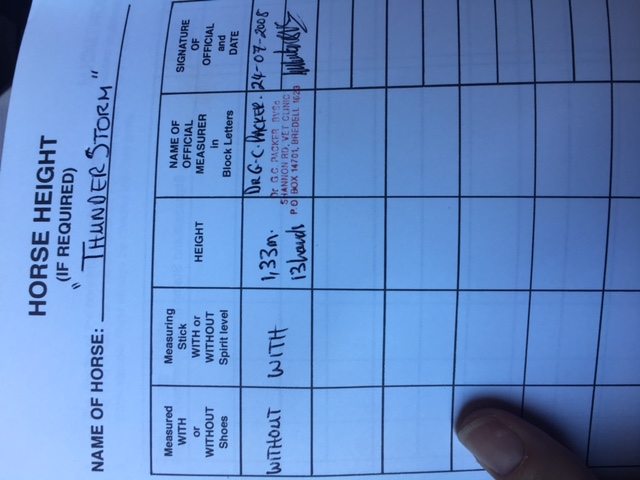 HORSE HEIGHT
(IF REQUIRED)
NAME OF HORSE: "THUNDER STORM"
Measured
WITH
or
WITHOUT
Shoes
Measuring
Stick
WITH or
WITHOUT
Spirit level
HEIGHT
NAME OF
OFFICIAL
MEASURER
in
Block Letters
SIGNATURE
OF
OFFICIAL
and
DATE
WITHOUT
WITH
1,33m.
13 hands
DR G-C. PACKER.
Dr G.C. PACKER BVSc
SHANNON RD. VET CLINIC
P.O. BOX 14701, BREDELL 1623
24-07-2005